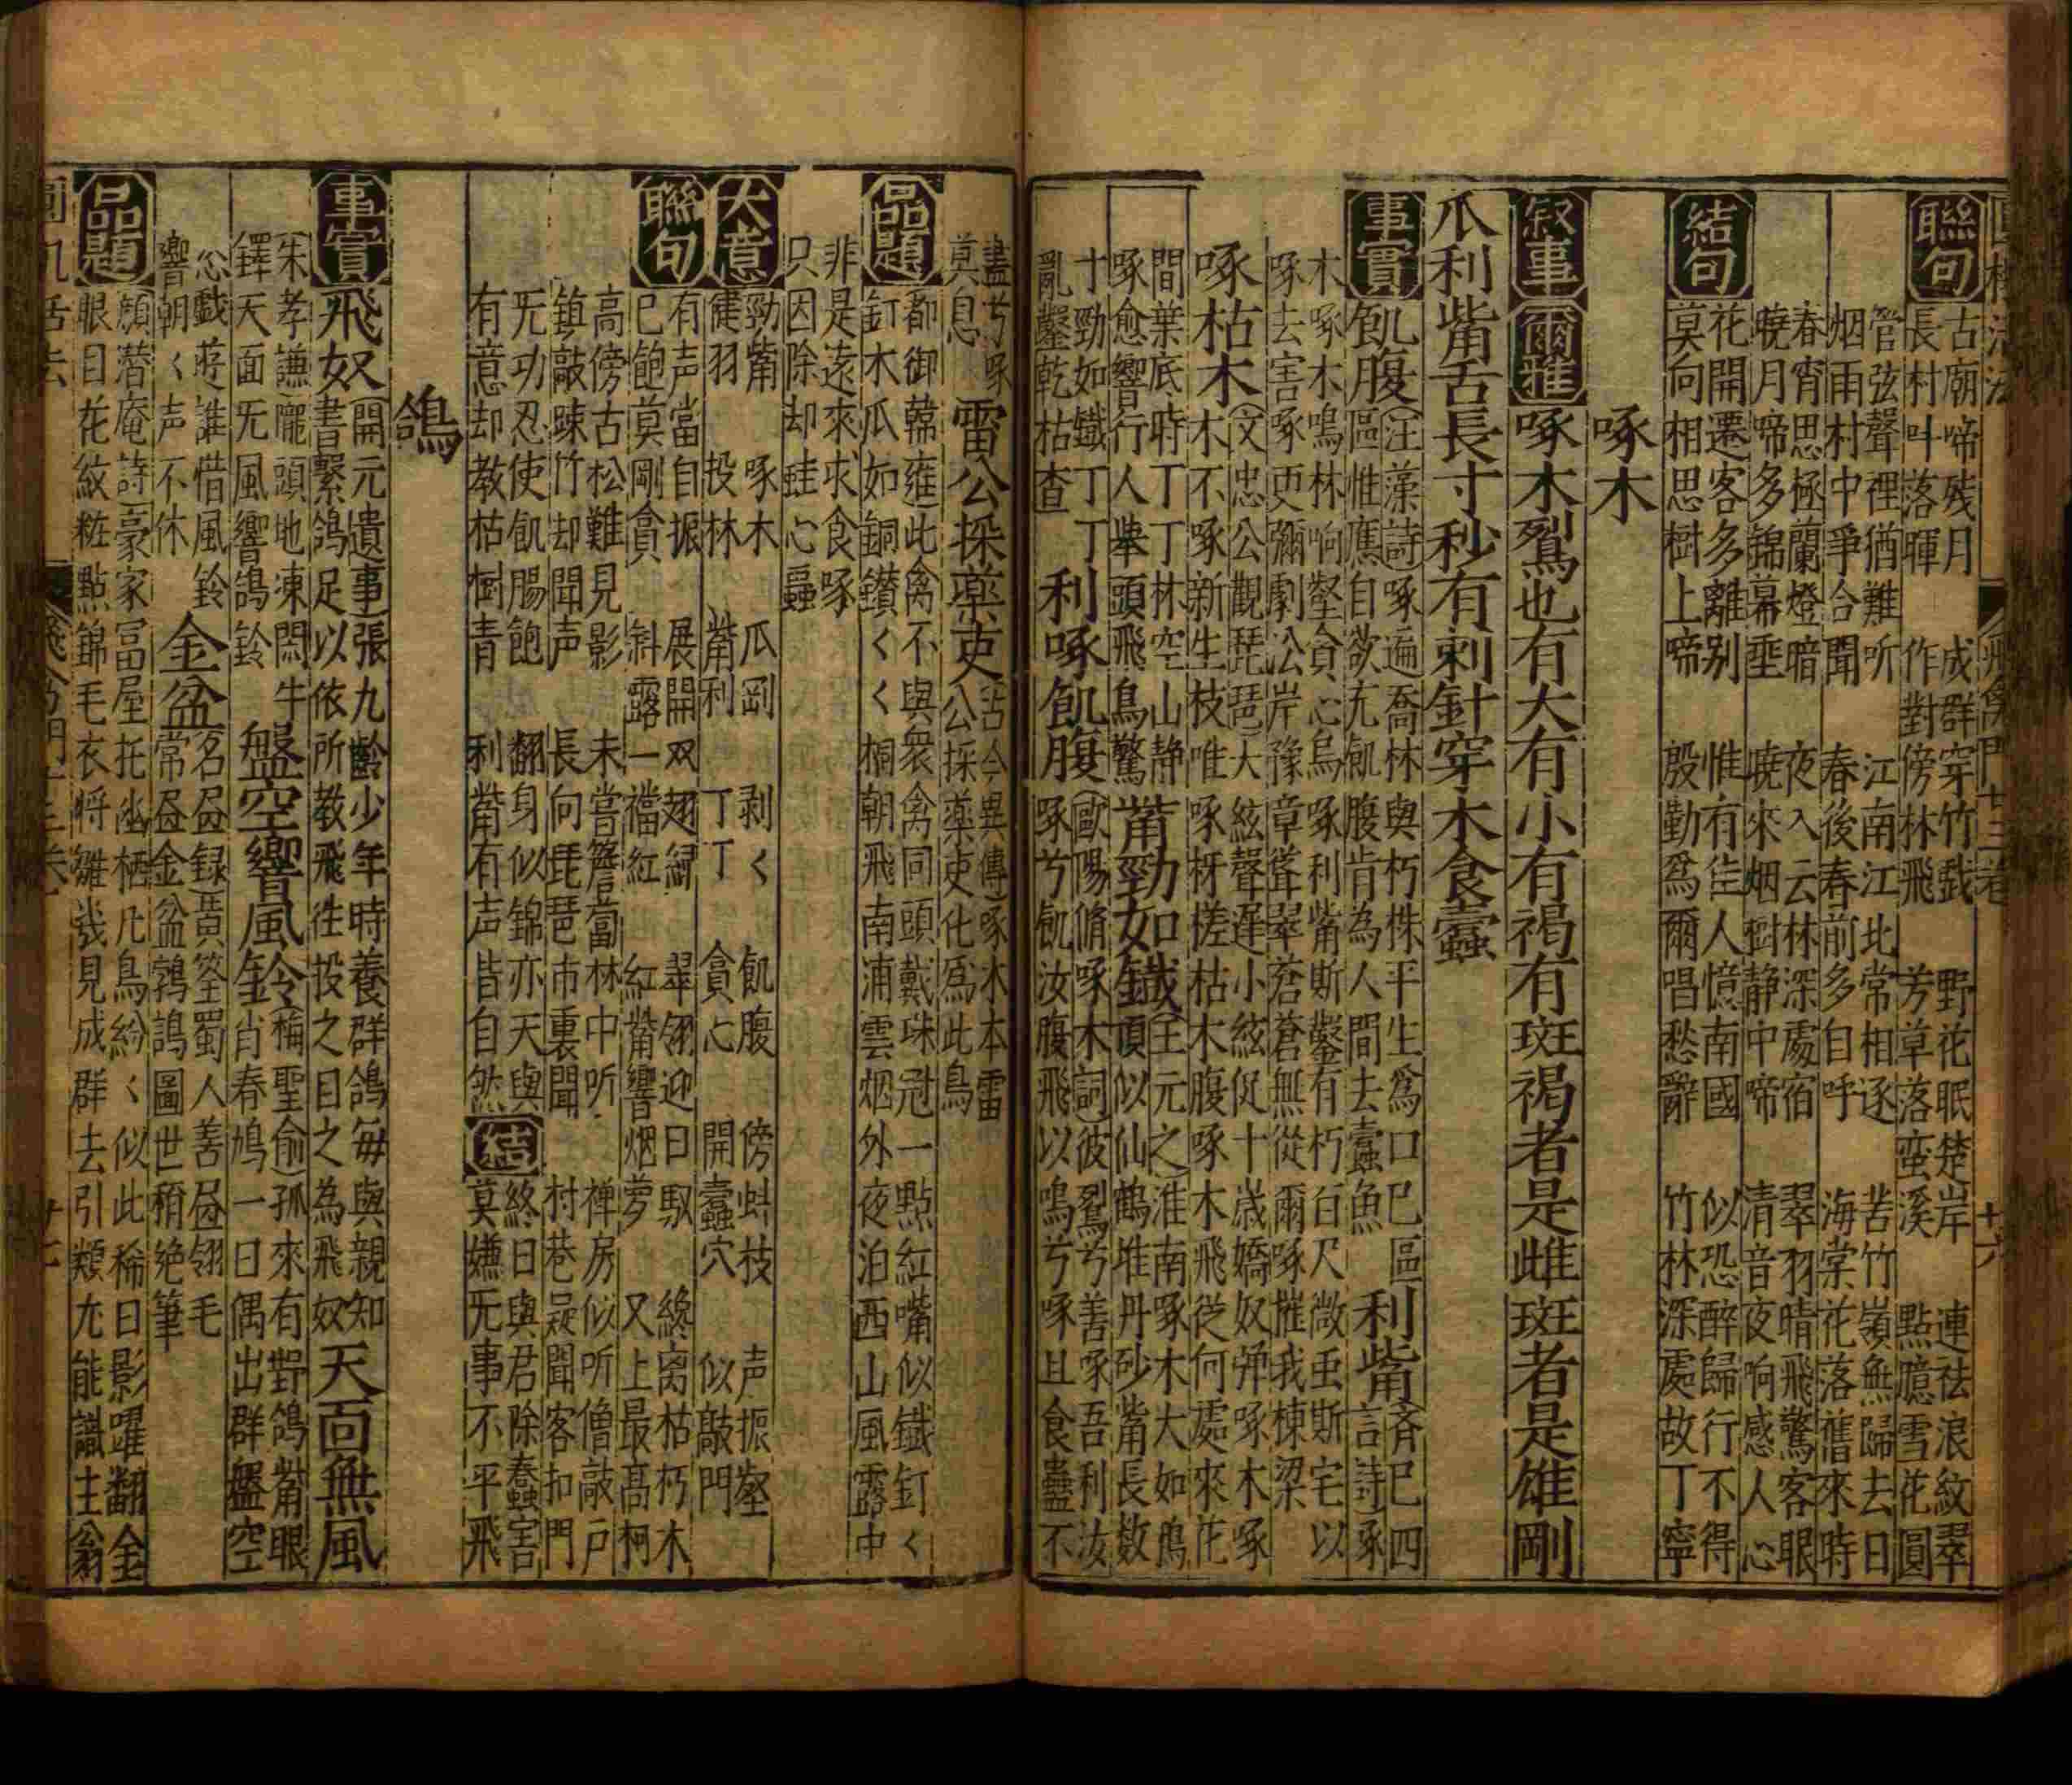 聯句
古廟啼残月　成群穿竹戯　野花眠楚岸　連袪浪紋翠
長村叫落暉　作對傍林飛　芳草落蛮溪　點臆雪花圓
管弦聲裡猶難听　江南江北常相逐　苦竹嶺無歸去日
烟雨村中爭合聞　春後春前多自呼　海棠花落舊來時
春宵思極蘭燈暗　夜入云林深處宿　翠羽晴飛驚客眼
曉月啼多錦幕垂　曉來烟樹静中啼　清音夜响感人心
結句
花開遷客多離别　惟有佳人憶南國　似恐醉歸行不得
莫向相思樹上啼　殷勤爲爾唱愁辭　竹林深處故丁寧
啄木
叙事 爾雅 啄木鴷也有大有小有褐有斑褐者是雌斑者是雄剛
爪利觜舌長寸秒有刺針穿木食蠹
事實
飢腹
汪藻詩啄遍喬林與朽株平生爲口巳區
區惟應自欲充飢腹肯為人間去蠹魚
利觜
斉巳四
言詩啄
木啄木鳴林响壑貪心烏啄利觜斯鑿有朽百尺微虫斯宅以
啄去害啄更彌劇公岸豫章聳翠蒼蒼無從爾啄摧我棟梁
啄枯木
文忠公觀琵琶大絃聲遅小絃促十歳嬌奴弾啄木啄
木不啄新生枝唯啄枒槎枯木腹啄木飛從何處來花
間葉底時丁丁林空山静
啄愈響行人舉頭飛鳥驚
觜勁如鐵
王元之淮南啄木大如鴉
頂似仙鶴堆丹砂觜長數
寸勁如鐵丁丁
亂鑿乾枯查
利啄飢腹
歐陽脩啄木詞彼鴷兮善啄吾利汝
啄兮飢汝腹飛以鳴兮啄且食蠹不
盡兮啄
莫息
雷公採藥吏
古今異傳啄木本雷
公採藥吏化爲此鳥
品題
都御韓雍此禽不與衆禽同頭戴珠冠一點紅嘴似鐵釘く
釘木爪如銅鑚くく桐朝飛南浦雲烟外夜泊西山風露中
非是遠來求食啄
只因除却蛀心蟲
大意
勁觜　啄木　爪剛　剥く　飢腹　傍蚪枝　声振壑
健羽　投林　觜利　丁丁　貪心　開蠹穴　似敲門
聯句
有声當自振　展開双翅緑　翠翎迎日馭　終离枯朽木
巳飽莫剛貪　斜露一襠紅　紅觜響烟蘿　又上最高柯
高傍古松難見影　未當簷前林中听　禅房似听僧敲戸
鎮敲踈竹却聞声　長向琵琶市裏聞　村巷疑聞客扣門
旡功忍使飢腸飽　翻身似錦亦天與
有意却教枯樹青　利觜有声皆自然
結
終日與君除蠹害
莫嫌旡事不平飛
鴿
事實
飛奴
開元遺事張九齡少年時養群鴿毎與親知
書繫鴿足以依所教飛往投之目之為飛奴
天面無風
朱孝謙隴頭地凍悶牛
鐸天面旡風響鴿鈴
盤空響風鈴
梅聖俞孤來有野鴿觜眼
肖春鳩一日偶出群盤空
忩戯蒋誰惜風鈴
響朝く声不休
金盆
名昼録黄筌蜀人善昼翎毛
常昼金盆鵓鴣圖世稱絶筆
品題
顔潜庵詩豪家冨屋托幽栖凡鳥紛く似此稀日影躍翻金
眼目花紋粧點錦毛衣将雛幾見成群去引類尤能識主翁